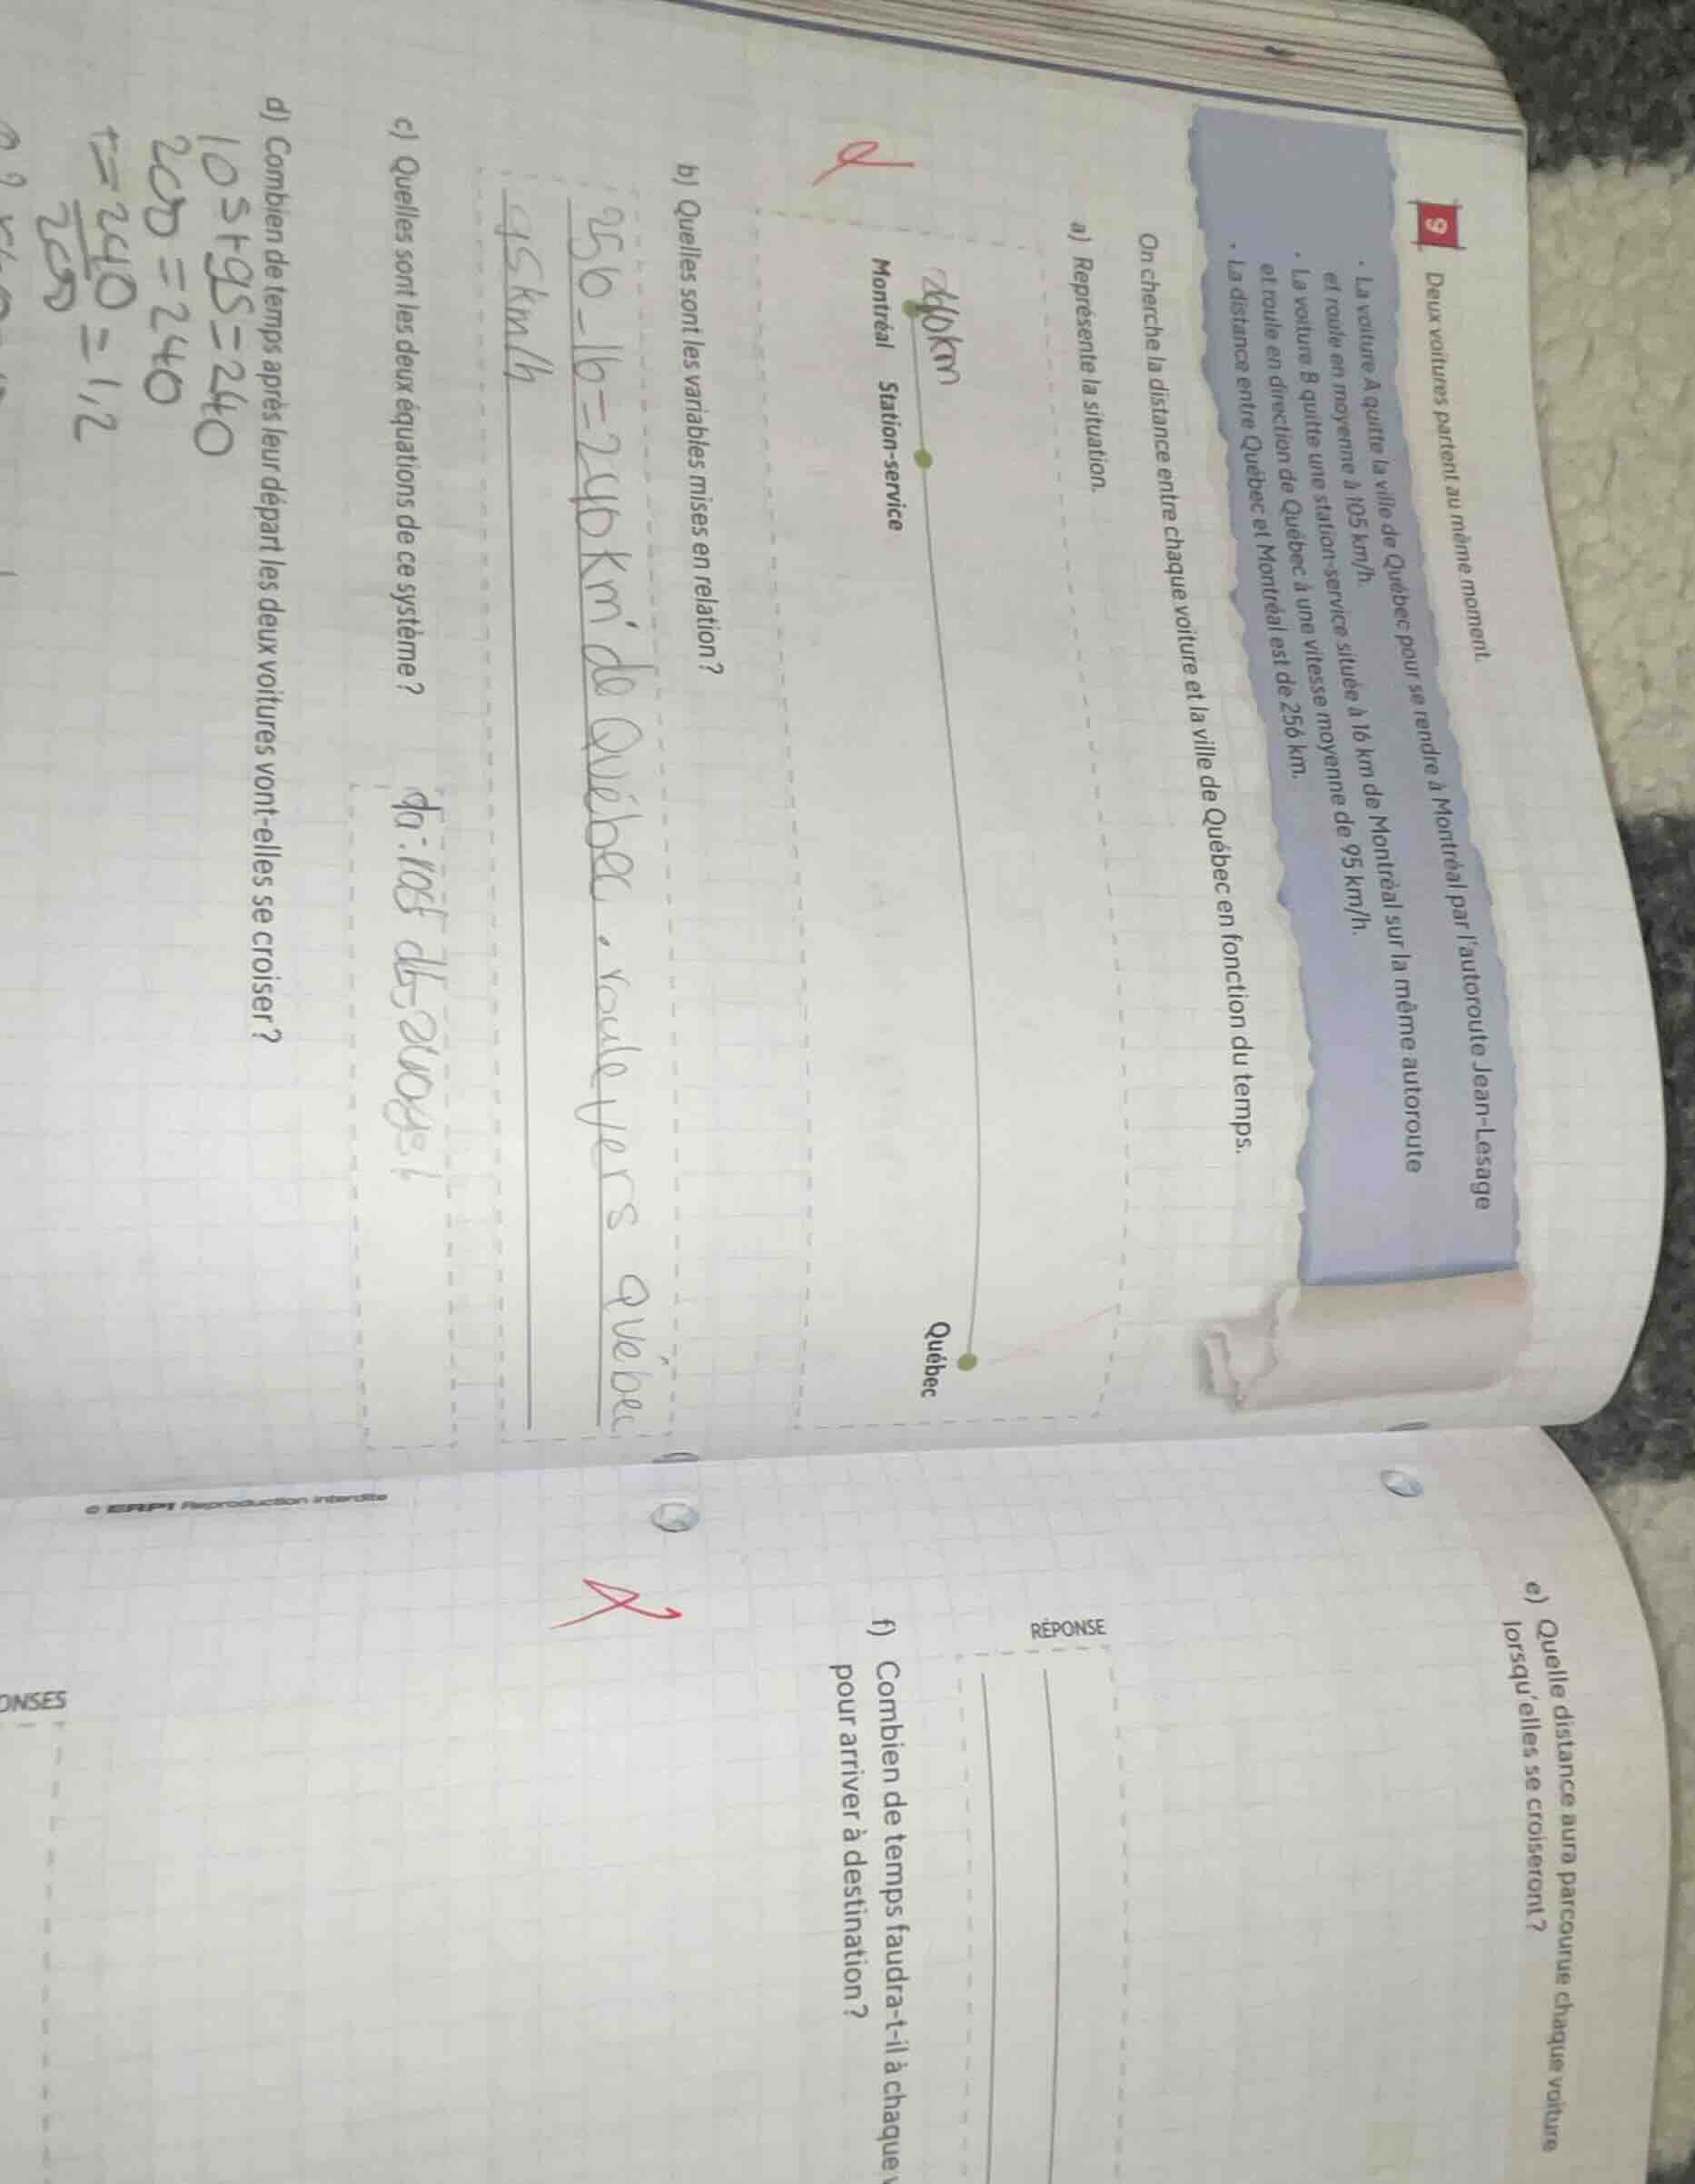 9 Deux voitures partent au même moment.
• La voiture A quitte la ville de Québec pour se rendre à Montréal par l'autoroute Jean-Lesage
et roule en moyenne à 105 km/h.
• La voiture B quitte une station-service située à 16 km de Montréal sur la même autoroute
et roule en direction de Québec à une vitesse moyenne de 95 km/h.
• La distance entre Québec et Montréal est de 256 km.
On cherche la distance entre chaque voiture et la ville de Québec en fonction du temps.
a) Représente la situation.
240km
Montréal Station-service Québec
b) Quelles sont les variables mises en relation?
256-16=240 km de Québec, roule vers Québec
95km/h
c) Quelles sont les deux équations de ce système?
d) Combien de temps après leur départ les deux voitures vont-elles se croiser?
105+95=240
200=240
t=240=1,2
200
© ERPI Reproduction interdite
e) Quelle distance aura parcourue chaque voiture
lorsqu'elles se croiseront?
RÉPONSE
f) Combien de temps faudra-t-il à chaque
pour arriver à destination?
ONSES